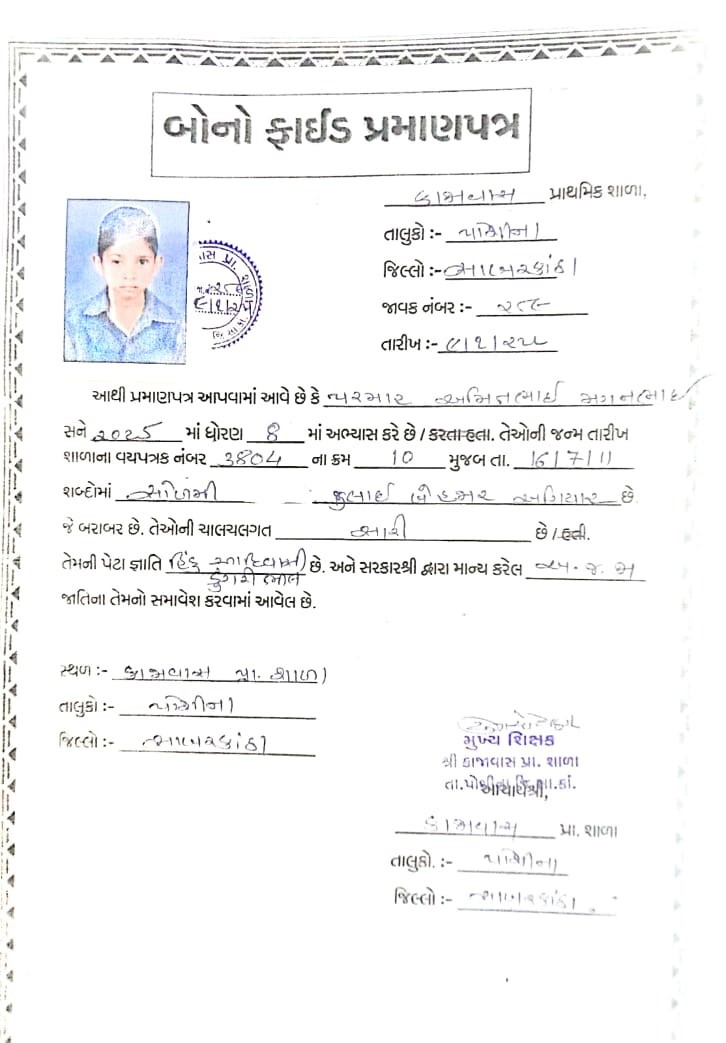 બોનો ફાઈડ પ્રમાણપત્ર
કાજાવાસ પ્રાથમિક શાળા.
તાલુકો :- પોશીના
જિલ્લો :- સાબરકાંઠા
જાવક નંબર :-
તારીખ :- ૯/૧/૨૫
આથી પ્રમાણપત્ર આપવામાં આવે છે કે પરમાર અમિતભાઇ મગનભાઇ
સને ૨૦૨૫ માં ધોરણ 8 માં અભ્યાસ કરે છે / કરતા હતા. તેઓની જન્મ તારીખ
શાળાના વયપત્રક નંબર 3804 ના ક્રમ 10 મુજબ તા. 16/7/11
શબ્દોમાં સોળમી જુલાઇ બે હજાર અગિયાર છે
જે બરાબર છે. તેઓની ચાલચલગત સારી છે / હતી.
તેમની પેટા જ્ઞાતિ હિંદુ આદિવાસી છે. અને સરકારશ્રી દ્વારા માન્ય કરેલ અ.જ.જ
ડુંગરી ભીલ
જાતિના તેમનો સમાવેશ કરવામાં આવેલ છે.
સ્થળ :- કાજાવાસ પ્રા. શાળા
તાલુકો :- પોશીના
જિલ્લો :- સાબરકાંઠા
મુખ્ય શિક્ષક
શ્રી કાજાવાસ પ્રા. શાળા
તા.પોશીના જિ.સા.કાં.
આચાર્યશ્રી,
કાજાવાસ પ્રા. શાળા
તાલુકો. :- પોશીના
જિલ્લો :- સાબરકાંઠા